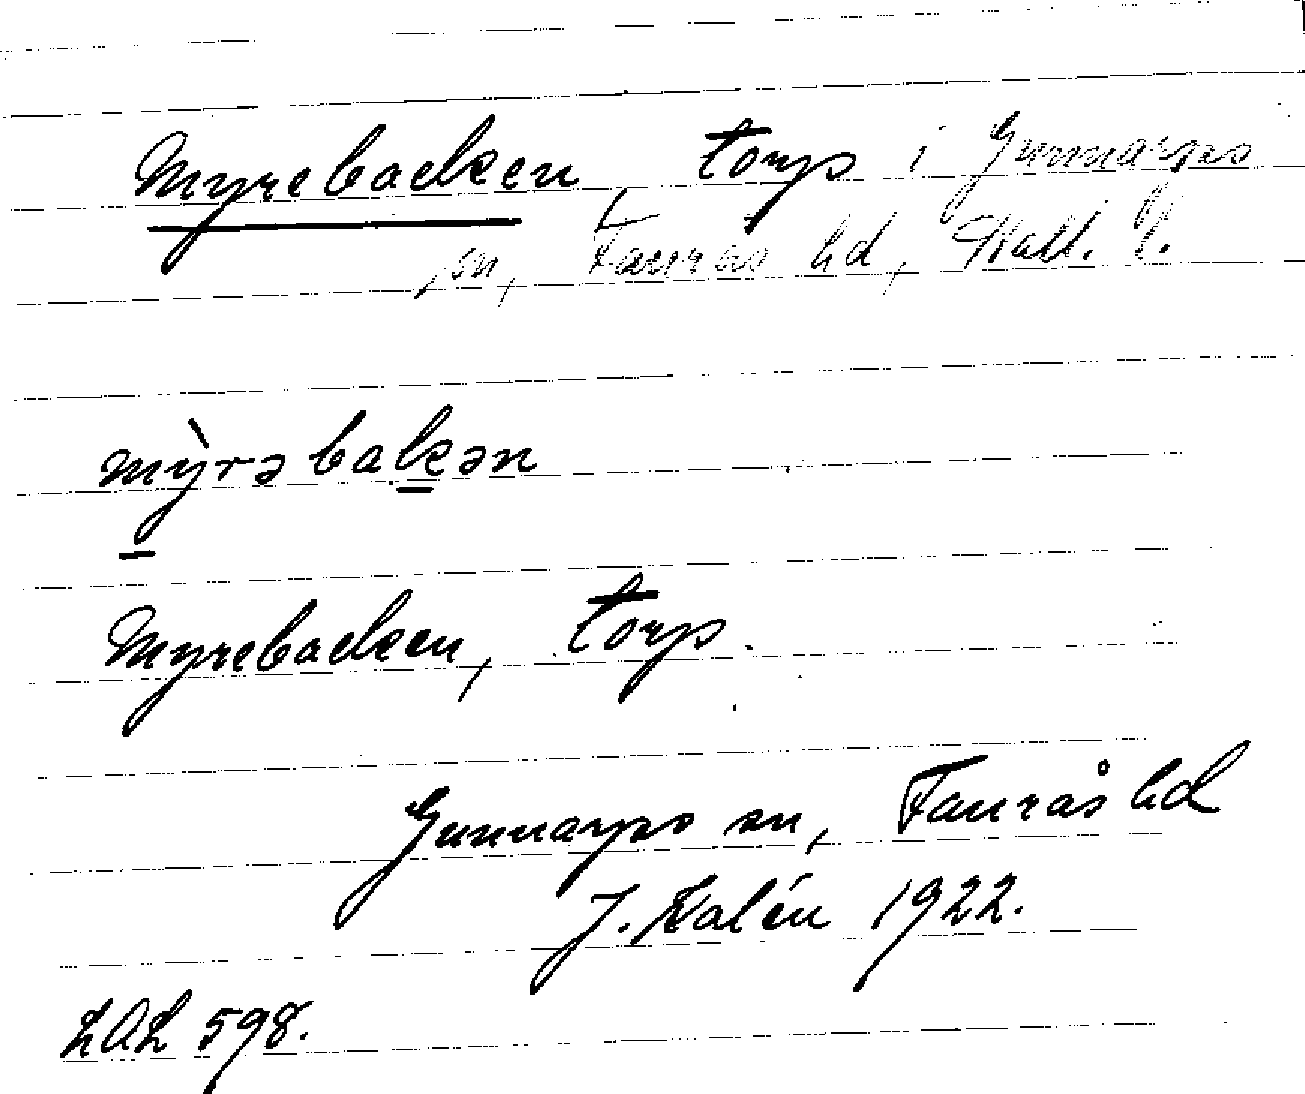 Myrebacken, torp i Gunnarps
sn, Faurås hd, Hall. l.
mỳrəbakən
Myrebacken, torp.
Gunnarps sn, Faurås hd
J. Kalén 1922.
LAL 598.